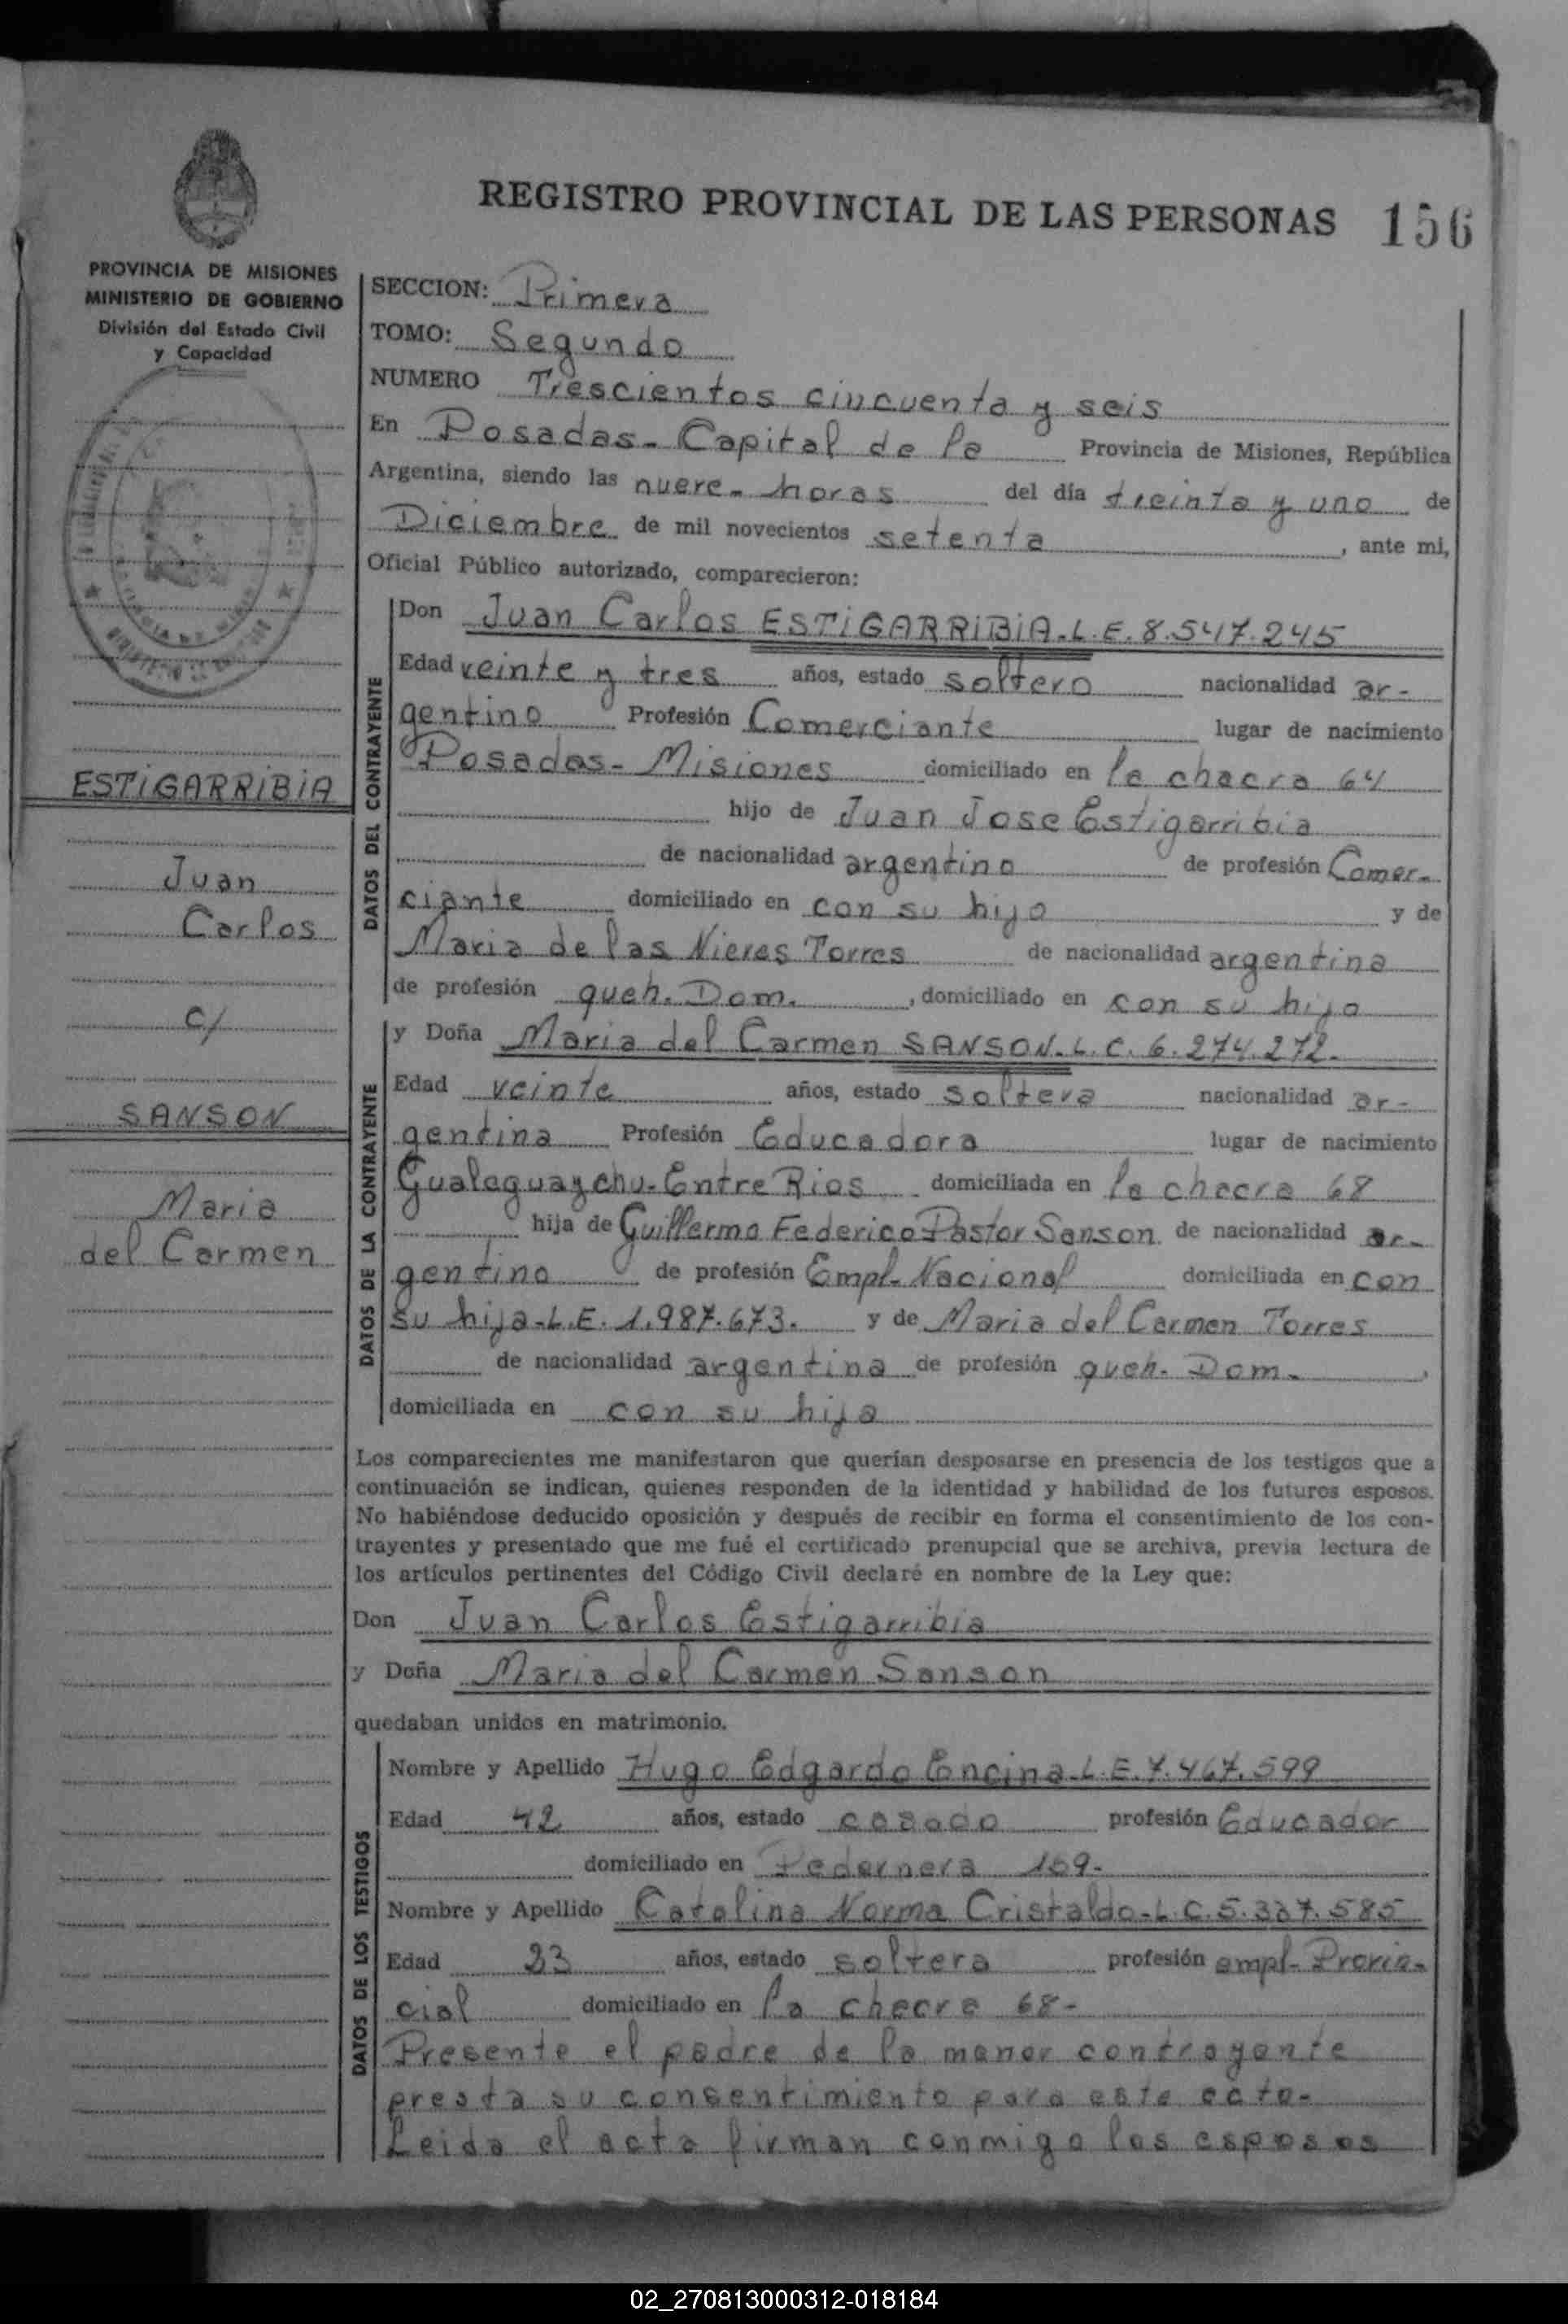 REGISTRO PROVINCIAL DE LAS PERSONAS 156
PROVINCIA DE MISIONES
MINISTERIO DE GOBIERNO
División del Estado Civil
y Capacidad
ESTIGARRIBIA
Juan
Carlos
c/
SANSON
Maria
del Carmen
SECCION: Primera
TOMO: Segundo
NUMERO Trescientos cincuenta y seis
En Posadas - Capital de la Provincia de Misiones, República
Argentina, siendo las nueve - horas del día treinta y uno de
Diciembre de mil novecientos setenta, ante mi,
Oficial Público autorizado, comparecieron:
DATOS DEL CONTRAYENTE
Don Juan Carlos ESTIGARRIBIA - L.E. 8.547.245
Edad veinte y tres años, estado soltero nacionalidad ar-
gentino Profesión Comerciante lugar de nacimiento
Posadas - Misiones domiciliado en la chacra 64
hijo de Juan Jose Estigarribia
de nacionalidad argentino de profesión Comer-
ciante domiciliado en con su hijo y de
Maria de las Nieves Torres de nacionalidad argentina
de profesión queh. Dom. , domiciliado en con su hijo
DATOS DE LA CONTRAYENTE
y Doña Maria del Carmen SANSON - L.C. 6.274.272.
Edad veinte años, estado soltera nacionalidad ar-
gentina Profesión Educadora lugar de nacimiento
Gualeguaychu - Entre Rios domiciliada en la chacra 68
hija de Guillermo Federico Pastor Sanson de nacionalidad ar-
gentino de profesión Empl. Nacional domiciliada en con
su hija - L.E. 1.987.673. y de Maria del Carmen Torres
de nacionalidad argentina de profesión queh. Dom. ,
domiciliada en con su hija
Los comparecientes me manifestaron que querían desposarse en presencia de los testigos que a
continuación se indican, quienes responden de la identidad y habilidad de los futuros esposos.
No habiéndose deducido oposición y después de recibir en forma el consentimiento de los con-
trayentes y presentado que me fué el certificado prenupcial que se archiva, previa lectura de
los artículos pertinentes del Código Civil declaré en nombre de la Ley que:
Don Juan Carlos Estigarribia
y Doña Maria del Carmen Sanson
quedaban unidos en matrimonio.
DATOS DE LOS TESTIGOS
Nombre y Apellido Hugo Edgardo Encina - L.E. 7.467.599
Edad 42 años, estado casado profesión Educador
domiciliado en Pedernera 109-
Nombre y Apellido Catalina Norma Cristaldo - L.C. 5.337.585
Edad 23 años, estado soltera profesión empl - Provin-
cial domiciliado en la chacra 68-
Presente el padre de la menor contrayente
presta su consentimiento para este acto-
Leida el acta firman conmigo los esposos
02_270813000312-018184